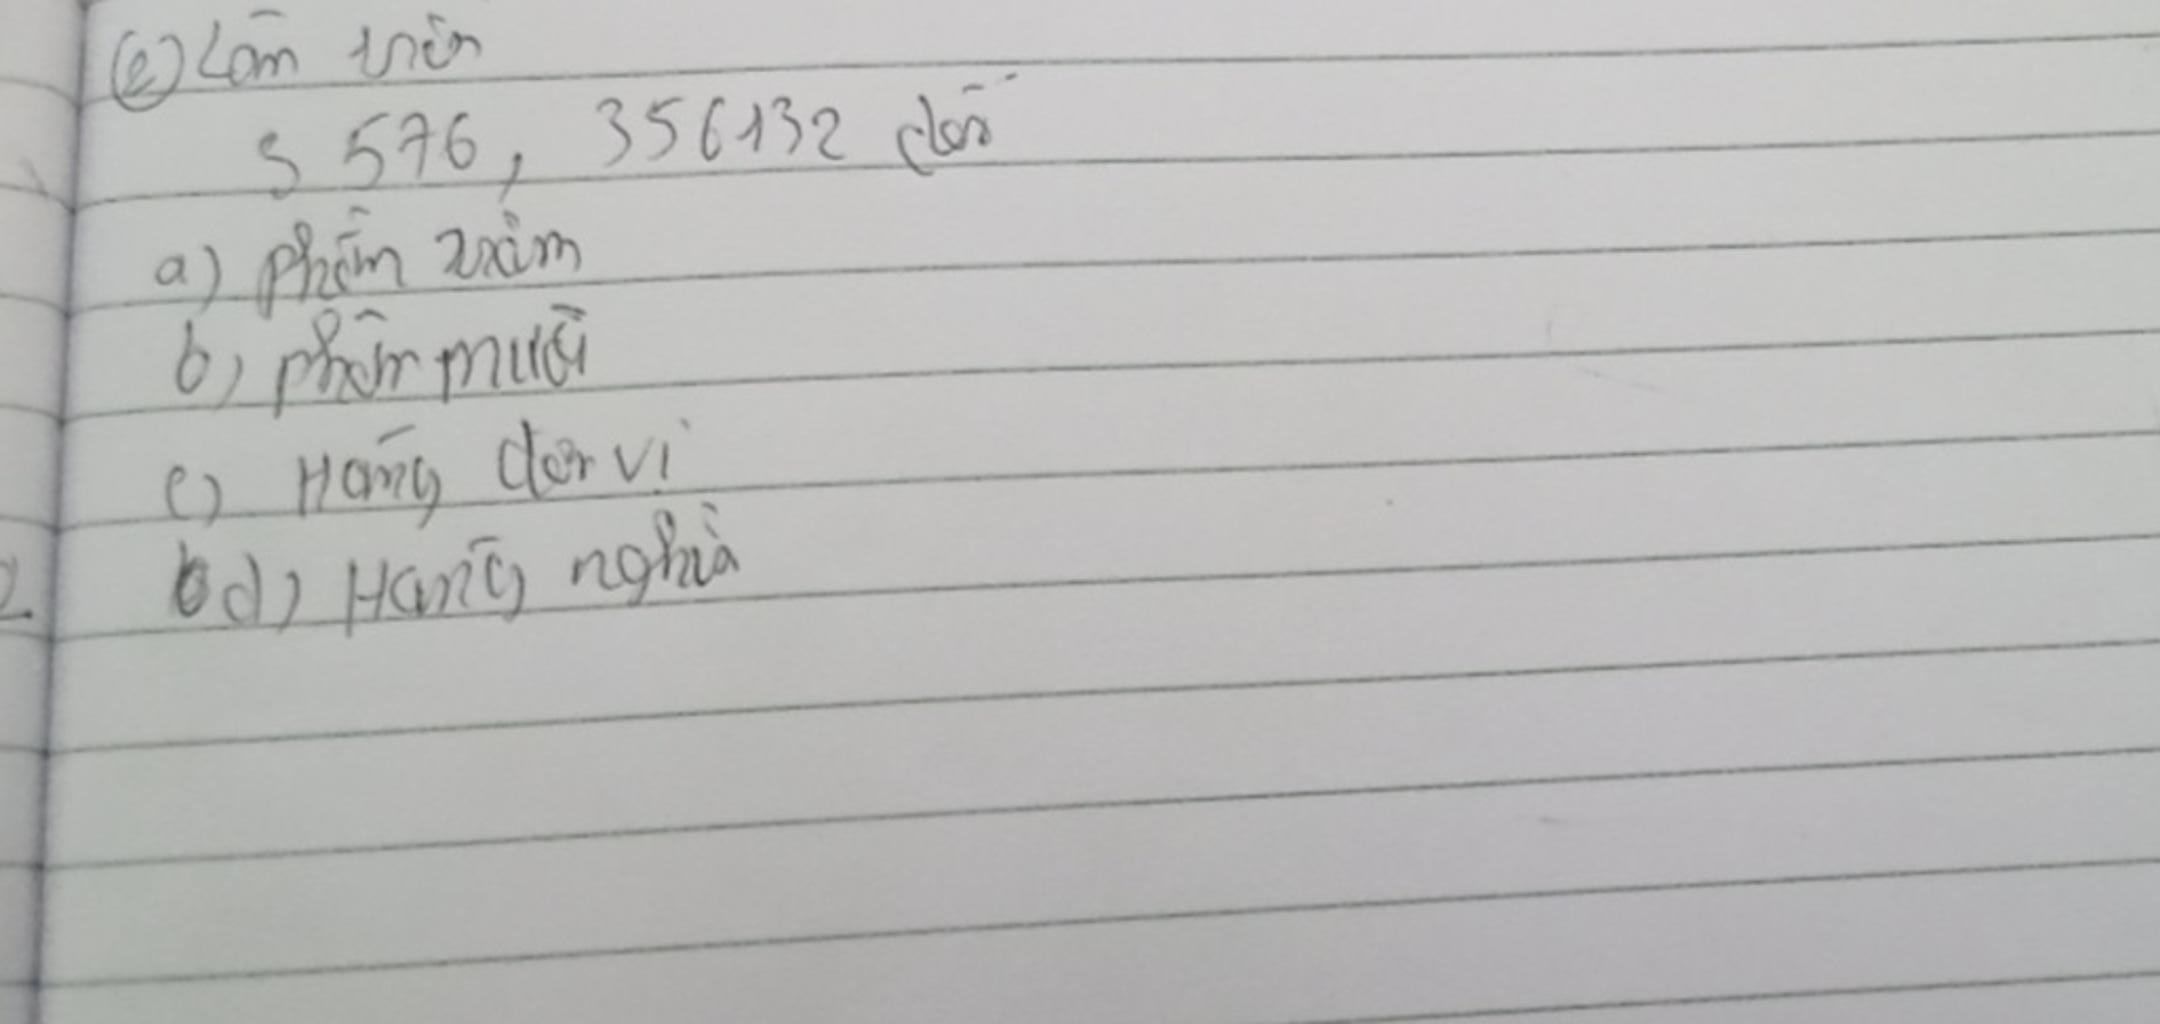 ② Làm tròn
5 576, 356132 đến
a) phần trăm
b) phần mười
c) Hàng đơn vị
d) Hàng nghìn
2